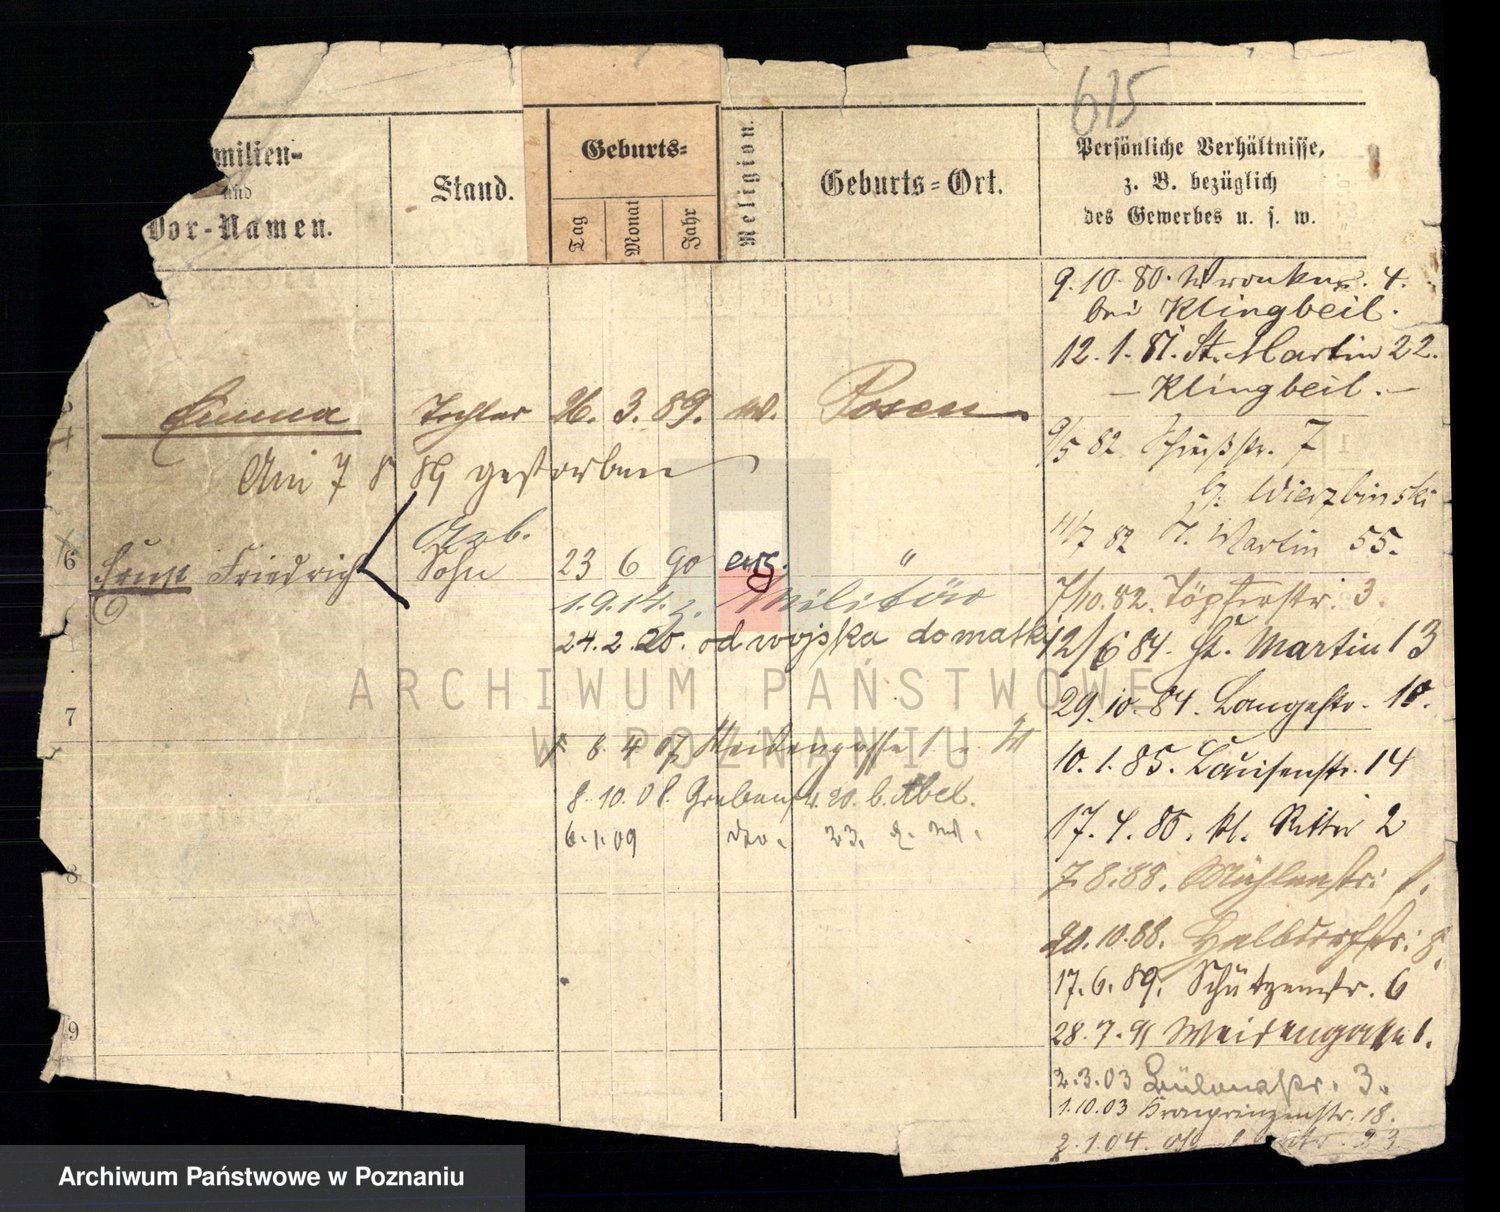 615
milien-
und
Vor-Namen.
Stand.
Geburts-
Tag
Monat
Jahr
Religion.
Geburts-Ort.
Persönliche Verhältnisse,
z. B. bezüglich
des Gewerbes u. s. w.
Emma Tochter 26. 3. 89. Posen
Am 7 8 89 gestorben
6
Ernst Friedrich Sohn 23 6 90 evg. "
1.9.14. z. Militär
24.2.20. od wojska do matki
7
8. 4 07 Weidengasse 1
8.10.08. Grabenstr. 20. b. Abel.
6.1.09 dto. 23.
8
9
9.10.80. Wronker. 4.
bei Klingbeil.
12.1.81. St. Martin 22.
- Klingbeil. -
9/5 82 Schießstr. 7
b. Wierzbinski
11/7 82 St. Martin 55.
7/10.82. Töpferstr. 3.
12/6 84. St. Martin 13
29.10.84. Langestr. 10.
10.1.85. Louisenstr. 14
17.4.85. kl. Ritter 2
7.8.88. Mühlenstr.
20.10.88. Halbdorfstr. 8.
17.6.89. Schützenstr. 6
28.7.91 Weidengasse 1.
2.3.03 Bülowstr. 3.
1.10.03 Kronprinzenstr. 18.
2.1.04. 23
ARCHIWUM PAŃSTWOWE
W POZNANIU
Archiwum Państwowe w Poznaniu